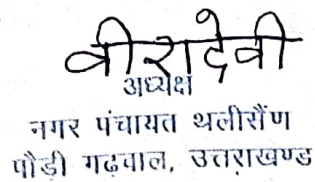 वीरा देवी
अध्यक्ष
नगर पंचायत थलीसैंण
पौड़ी गढ़वाल, उत्तराखण्ड